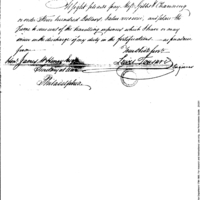 At sight please pay Messrs Gibbs & Channing
or order Three hundred Dollars, value received, and place the
same to account of the travelling expences which I have or may
incur in the discharge of my duty on the fortifications
Your Obedt Servt
Louis Tousard
James McHenry Esqr
Secretary at War
Philadelphia